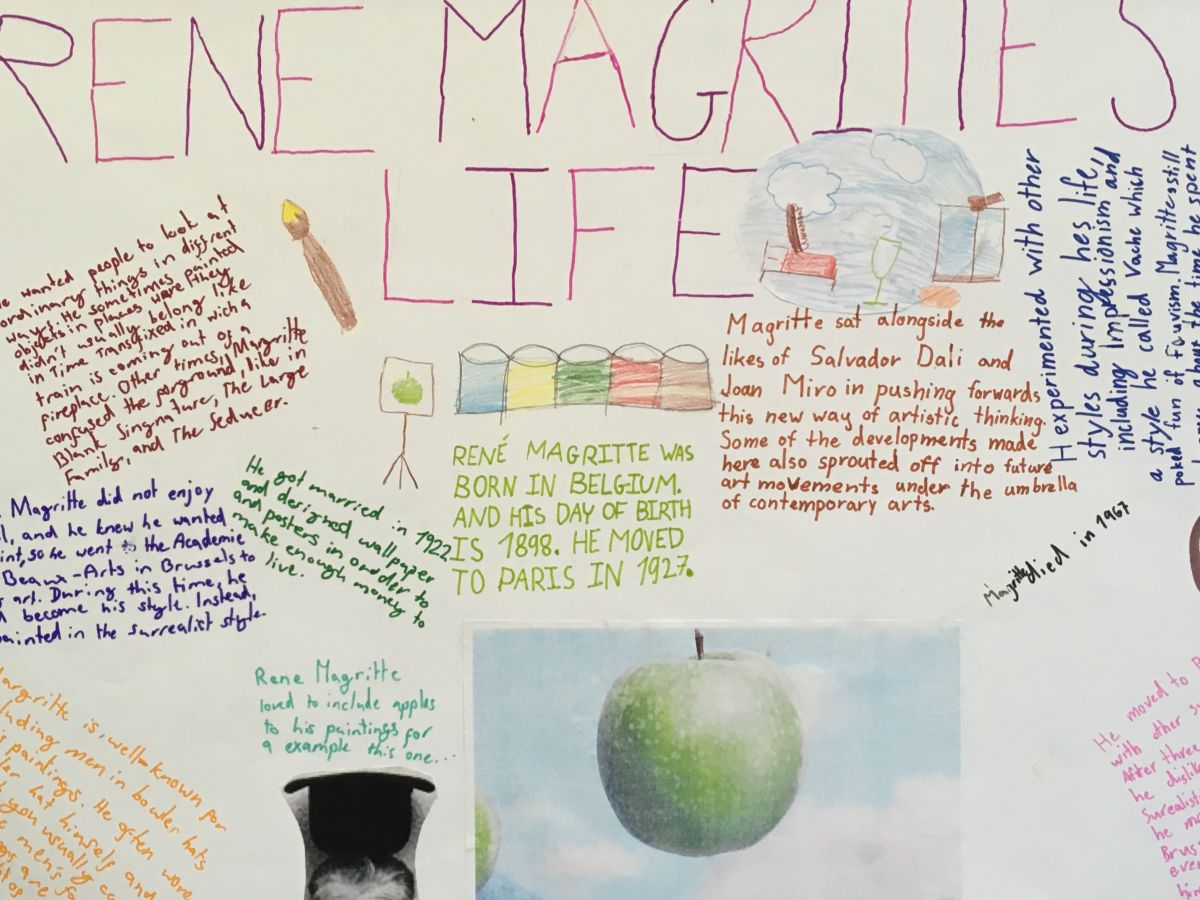 RENE MAGRITTES
LIFE
wanted people to look at
ordinary things in diffrent
ways. He sometimes painted
objects in places were they
didn't usually belong like
in Time Transfixed in wich a
train is coming out of a
fireplace. Other times, Magritte
confused the forground, like in
Blank Singnature, The Large
Family, and The Seducer.
Magritte did not enjoy
and he knew he wanted
so he went to the Academie
Beaux-Arts in Brussels to
art. During this time, he
become his style. Instead,
painted in the surrealist style.
He got married in 1922
and designed wallpaper
and posters in oudder to
make enough money to
live.
RENÉ MAGRITTE WAS
BORN IN BELGIUM.
AND HIS DAY OF BIRTH
IS 1898. HE MOVED
TO PARIS IN 1927.
Magritte sat alongside the
likes of Salvador Dali and
Joan Miro in pushing forwards
this new way of artistic thinking.
Some of the developments made
here also sprouted off into future
art movements under the umbrella
of contemporary arts.
H experimented with other
styles during hes life,
including Impressionism and
a style he called Vache which
poked fun of fauvism. Magritte still
the time he spent
Magritte died in 1967
Rene Magritte
loved to include apples
to his paintings for
a example this one...
Margritte is well-known for
men in bowler hats
paintings. He often wore
hat himself and
you usually
men's
are
He moved to
with other
After three
he
he